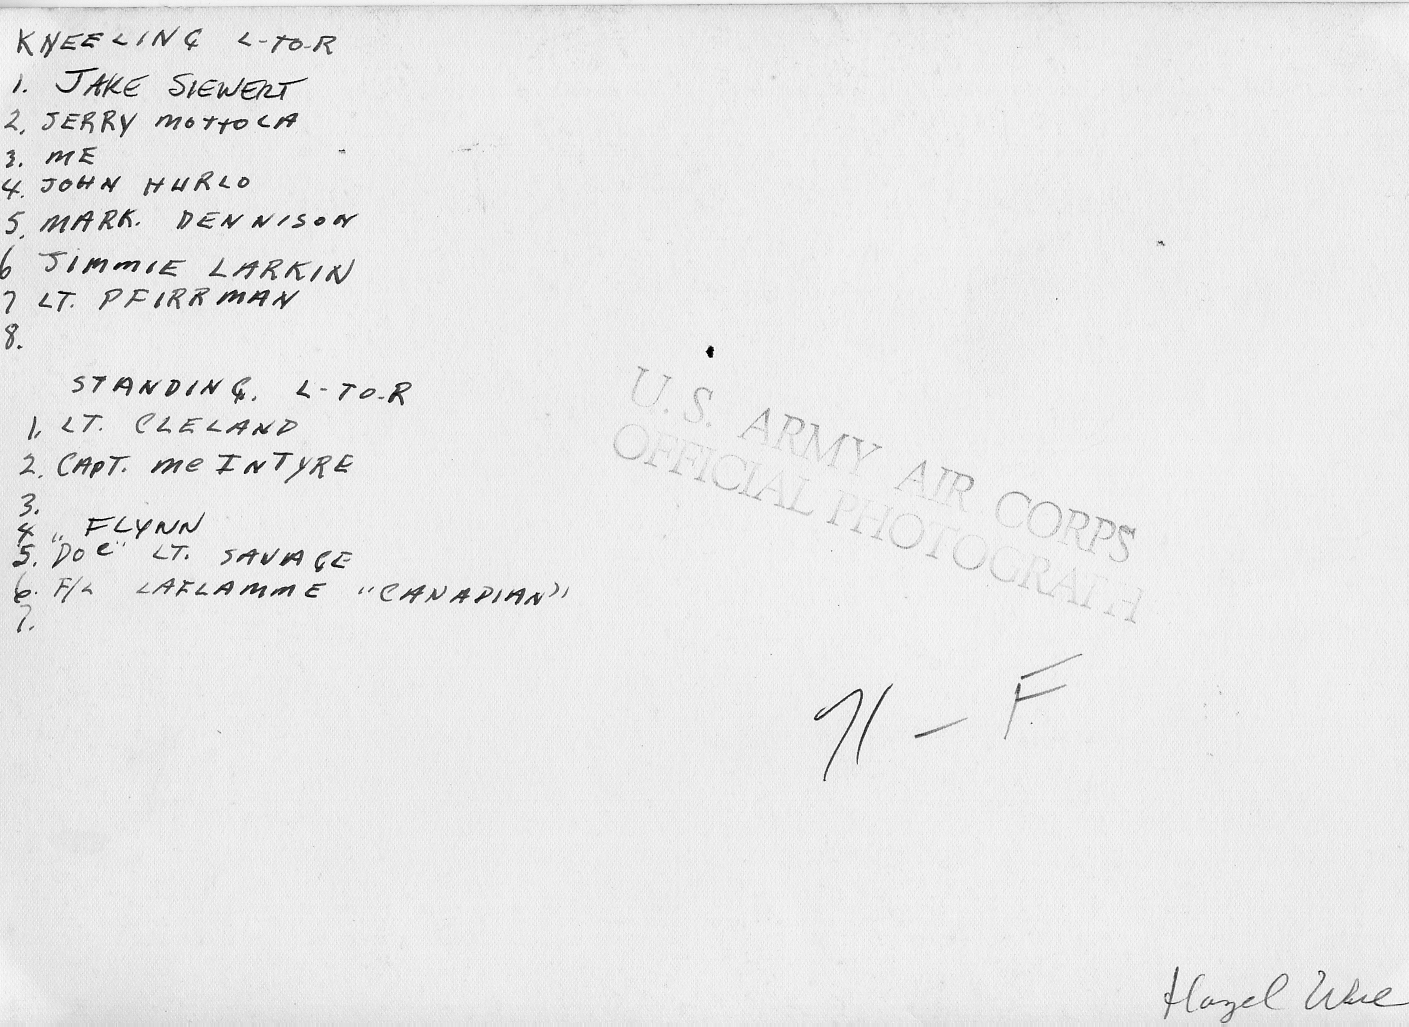 KNEELING L-TO-R
1. JAKE SIEWERT
2. JERRY MOTTOLA
3. ME
4. JOHN HURLO
5. MARK. DENNISON
6 JIMMIE LARKIN
7 LT. PFIRRMAN
8.
STANDING. L-TO-R
1. LT. CLELAND
2. CAPT. McINTYRE
3.
4 " FLYNN
5. "DOC" LT. SAVAGE
6. F/L LAFLAMME "CANADIAN"
7.
U.S. ARMY AIR CORPS
OFFICIAL PHOTOGRAPH
- F
Hazel